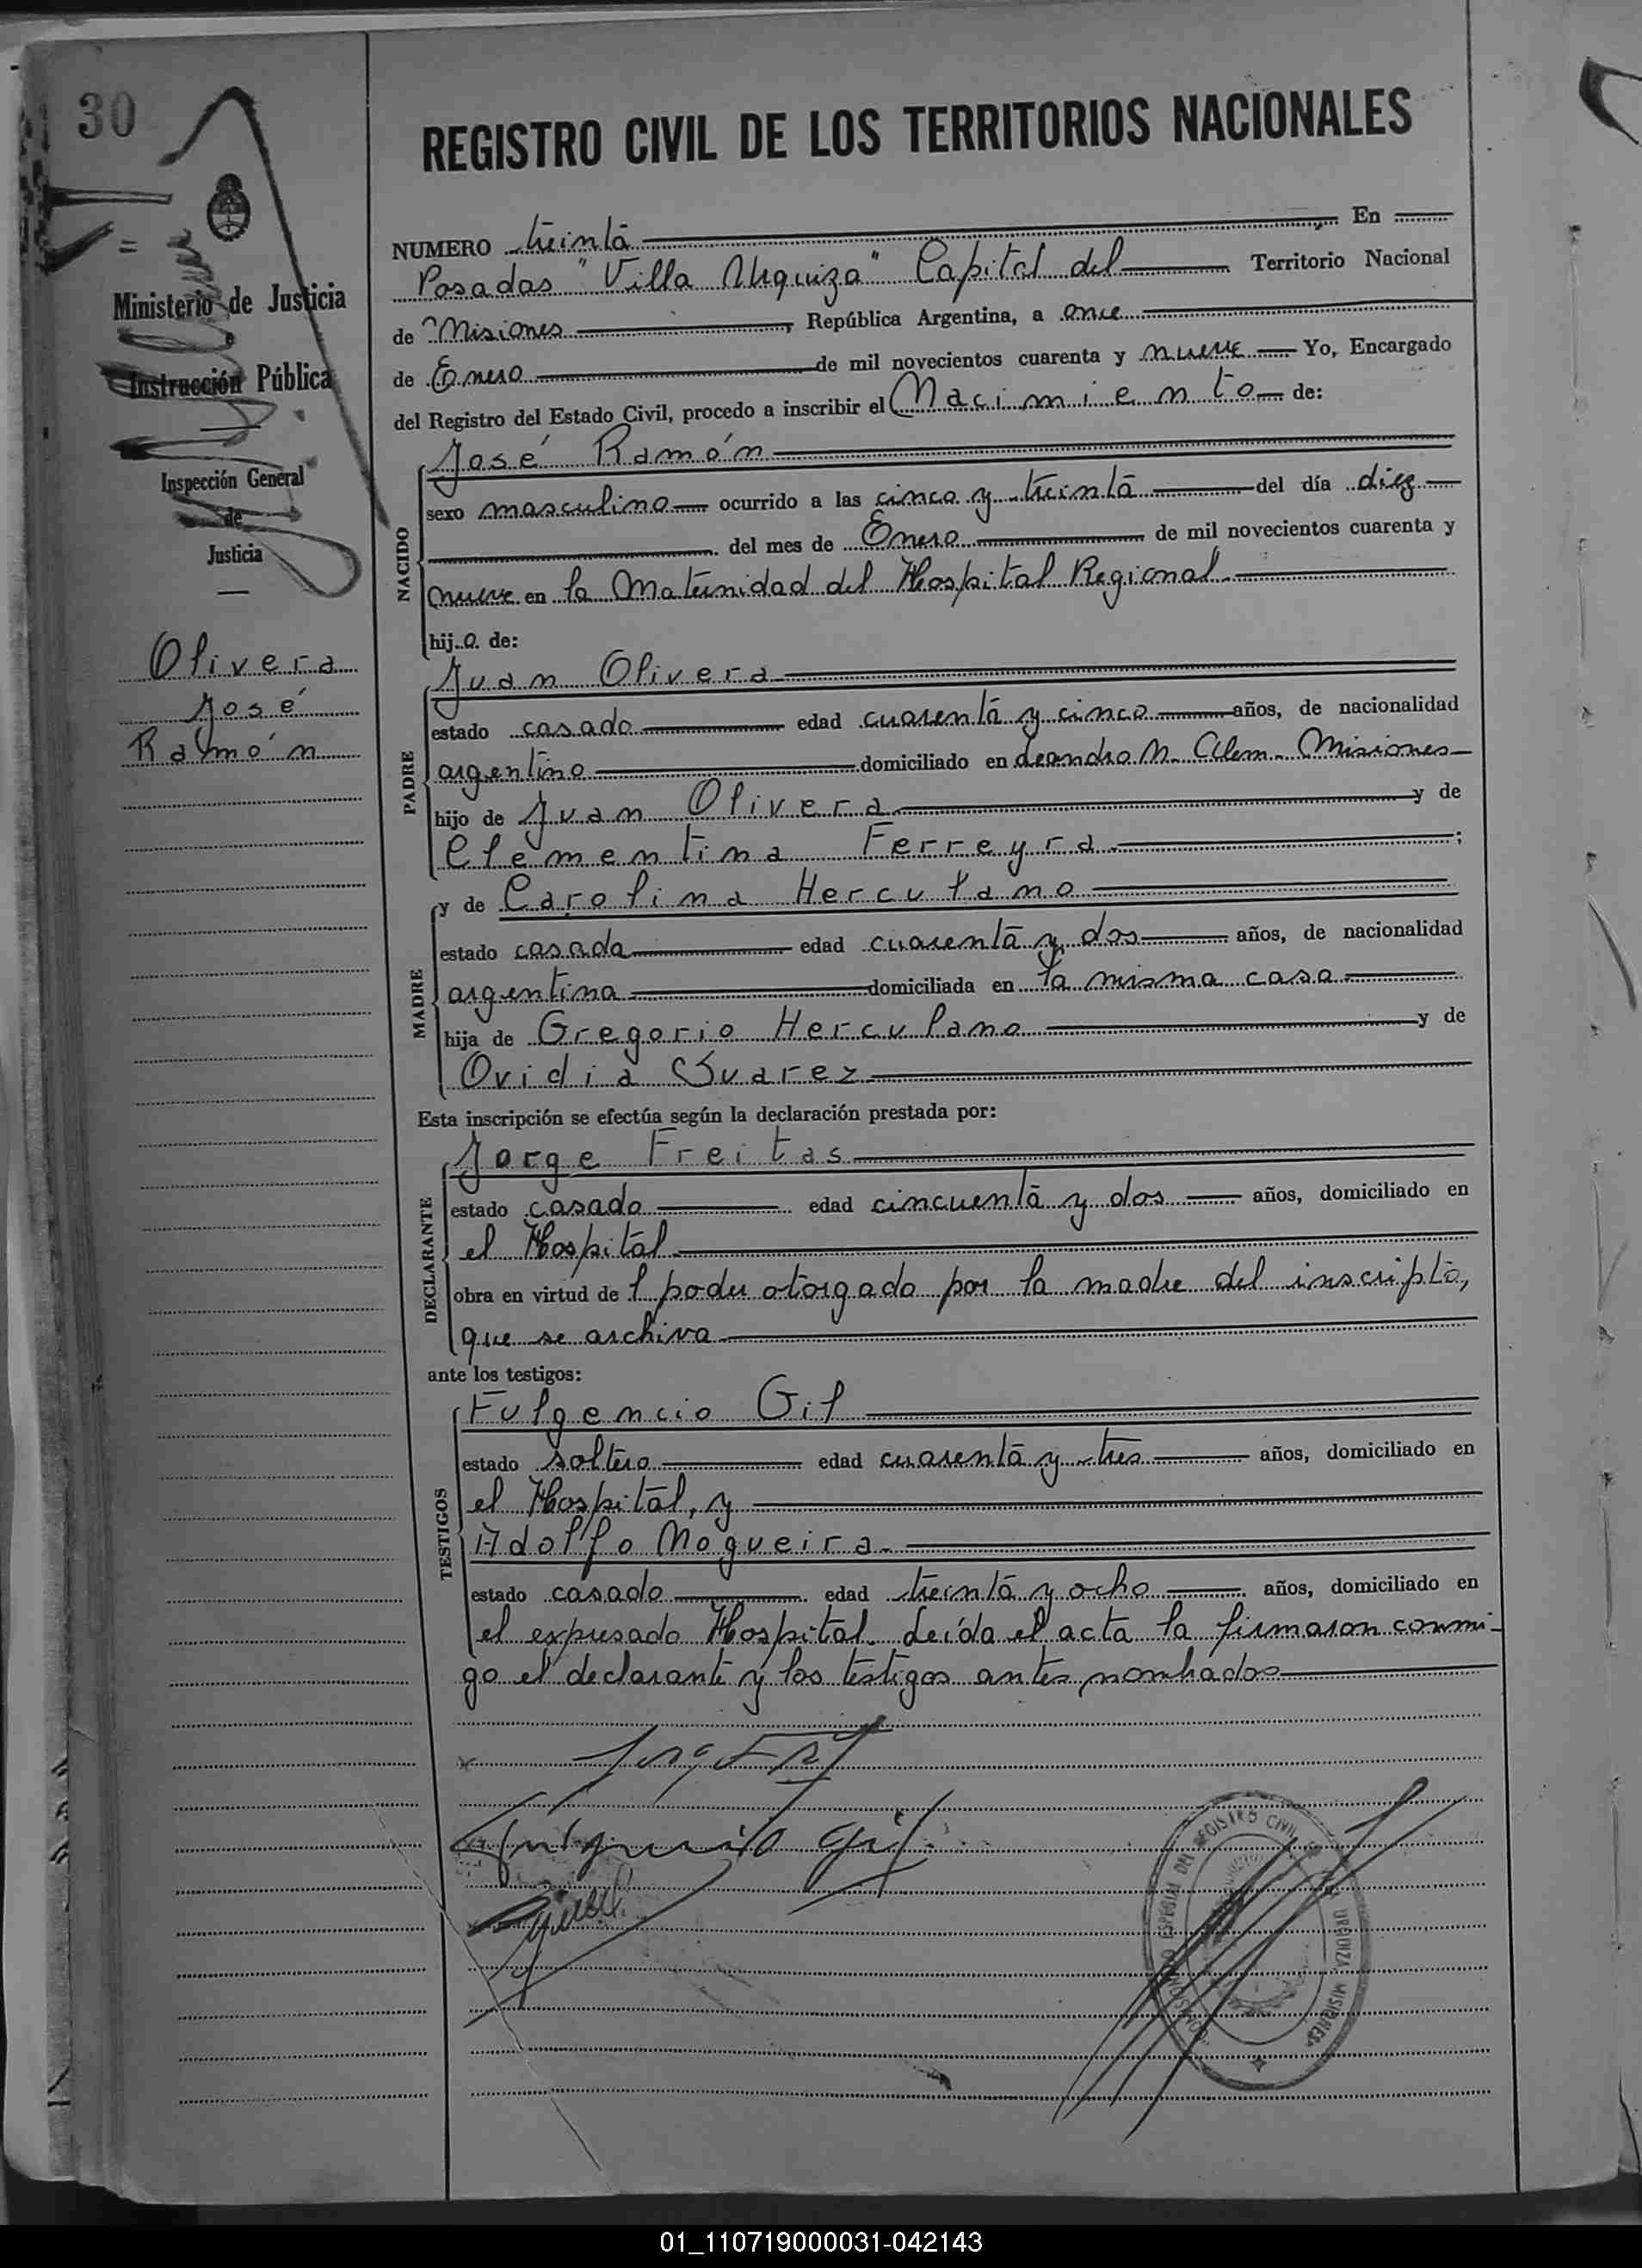 30
REGISTRO CIVIL DE LOS TERRITORIOS NACIONALES
Ministerio de Justicia
e
Instrucción Pública
Inspección General
de
Justicia
Olivera
José
Ramón
NUMERO treinta En
Posadas "Villa Urquiza" Capital del Territorio Nacional
de Misiones, República Argentina, a once
de Enero de mil novecientos cuarenta y nueve Yo, Encargado
del Registro del Estado Civil, procedo a inscribir el Nacimiento de:
NACIDO
José Ramón
sexo masculino ocurrido a las cinco y treinta del día diez
del mes de Enero de mil novecientos cuarenta y
nueve en la Maternidad del Hospital Regional
hij o de:
PADRE
Juan Olivera
estado casado edad cuarenta y cinco años, de nacionalidad
argentino domiciliado en Leandro N. Alem - Misiones
hijo de Juan Olivera y de
Clementina Ferreyra ;
MADRE
y de Carolina Herculano
estado casada edad cuarenta y dos años, de nacionalidad
argentina domiciliada en la misma casa
hija de Gregorio Herculano y de
Ovidia Suarez
Esta inscripción se efectúa según la declaración prestada por:
DECLARANTE
Jorge Freitas
estado casado edad cincuenta y dos años, domiciliado en
el Hospital
obra en virtud de l poder otorgado por la madre del inscripto,
que se archiva
ante los testigos:
TESTIGOS
Fulgencio Gil
estado soltero edad cuarenta y tres años, domiciliado en
el Hospital, y
Adolfo Nogueira
estado casado edad treinta y ocho años, domiciliado en
el expresado Hospital. Leída el acta la firmaron conmi-
go el declarante y los testigos antes nombrados
Fulgencio Gil
ESPECIAL DEL REGISTRO CIVIL
URQUIZA MISIONES
01_110719000031-042143